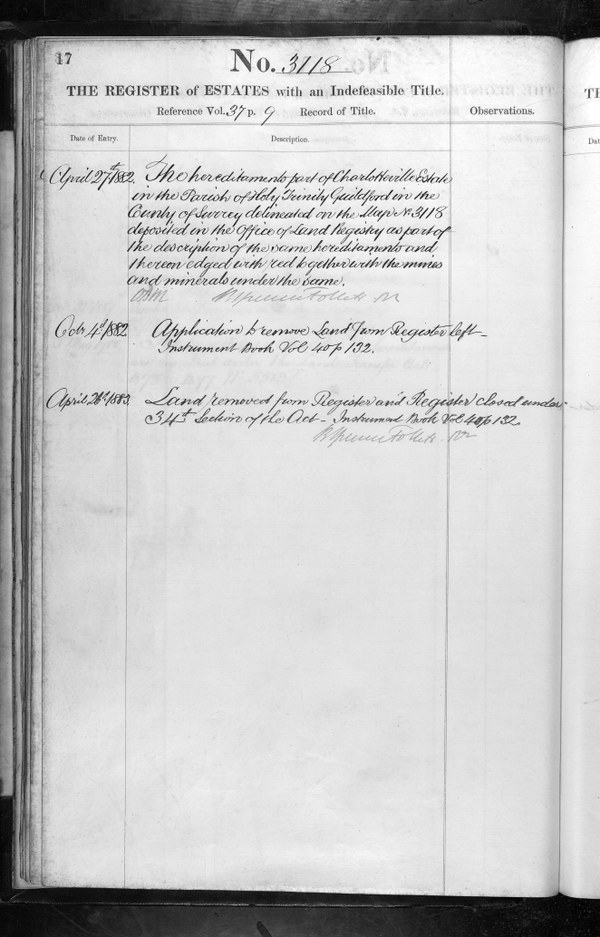 17
No. 3118
THE REGISTER of ESTATES with an Indefeasible Title.
Reference Vol. 37 p. 9 Record of Title. Observations.
Date of Entry. Description.
April 27th 1882. The hereditaments part of Charlotteville Estate
in the Parish of Holy Trinity Guildford in the
County of Surrey delineated on the Map No 3118
deposited in the Office of Land Registry as part of
the description of the same hereditaments and
thereon edged with red together with the mines
and minerals under the same.
Octr 4th/1882 Application to remove Land from Register left –
Instrument Book Vol 40 p 132.
April 26th/1883 Land removed from Register and Register closed under
34th Section of the Act – Instrument Book Vol 40 p 132